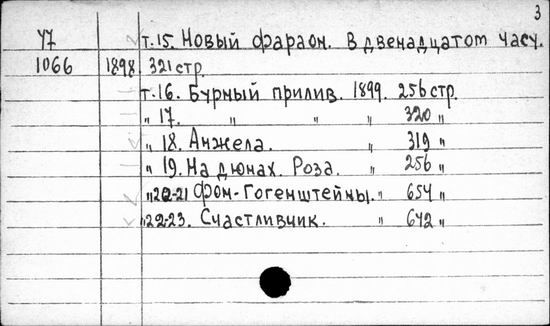 3
У7 т.15. Новый фараон. В двенадцатом часу.
1066 1898 321 стр.
т.16. Бурный прилив. 1899. 256 стр.
„ 17. „ „ „ 320 „
„ 18. Анжела. „ 319 „
„ 19. На дюнах. Роза. „ 256 „
„ 20-21 Фон-Гогенштейны. „ 654 „
„ 22-23. Счастливчик. „ 642 „